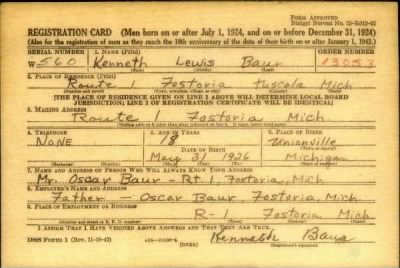 FORM APPROVED
Budget Bureau No. 33-R012-42
REGISTRATION CARD (Men born on or after July 1, 1924, and on or before December 31, 1924)
(Also for the registration of men as they reach the 18th anniversary of the date of their birth on or after January 1, 1943.)
SERIAL NUMBER 1. NAME (Print) ORDER NUMBER
W 560 Kenneth Lewis Baur 13053
(First) (Middle) (Last)
2. PLACE OF RESIDENCE (Print)
Route 1 Fostoria Tuscola Mich
(Number and street) (Town, township, village, or city) (County) (State)
[THE PLACE OF RESIDENCE GIVEN ON LINE 2 ABOVE WILL DETERMINE LOCAL BOARD
JURISDICTION; LINE 2 OF REGISTRATION CERTIFICATE WILL BE IDENTICAL]
3. MAILING ADDRESS
Route 1 Fostoria Mich.
4. TELEPHONE 5. AGE IN YEARS 6. PLACE OF BIRTH
NONE 18 Unionville
DATE OF BIRTH
May 31 1926 Michigan
(Exchange) (Number) (Mo.) (Day) (Yr.) (State or country)
7. NAME AND ADDRESS OF PERSON WHO WILL ALWAYS KNOW YOUR ADDRESS
Mr. Oscar Baur - Rt. 1, Fostoria, Mich
8. EMPLOYER'S NAME AND ADDRESS
Father - Oscar Baur, Fostoria, Mich
9. PLACE OF EMPLOYMENT OR BUSINESS
R-1 Fostoria Mich.
(Number and street or R. F. D. number) (Town) (County) (State)
I AFFIRM THAT I HAVE VERIFIED ABOVE ANSWERS AND THAT THEY ARE TRUE.
DSS Form 1 (Rev. 11-16-42) (OVER) Kenneth Baur
(Registrant's signature)